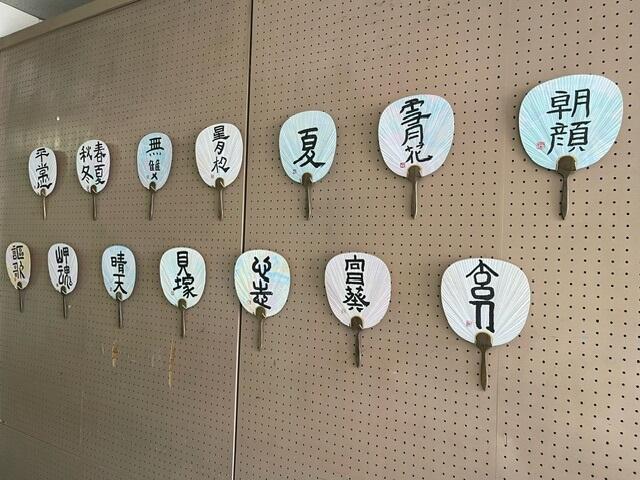 平常
春夏
秋冬
無雙
星月
夏
雪月花
朝顔
謳歌
魂
晴天
貝塚
向日葵